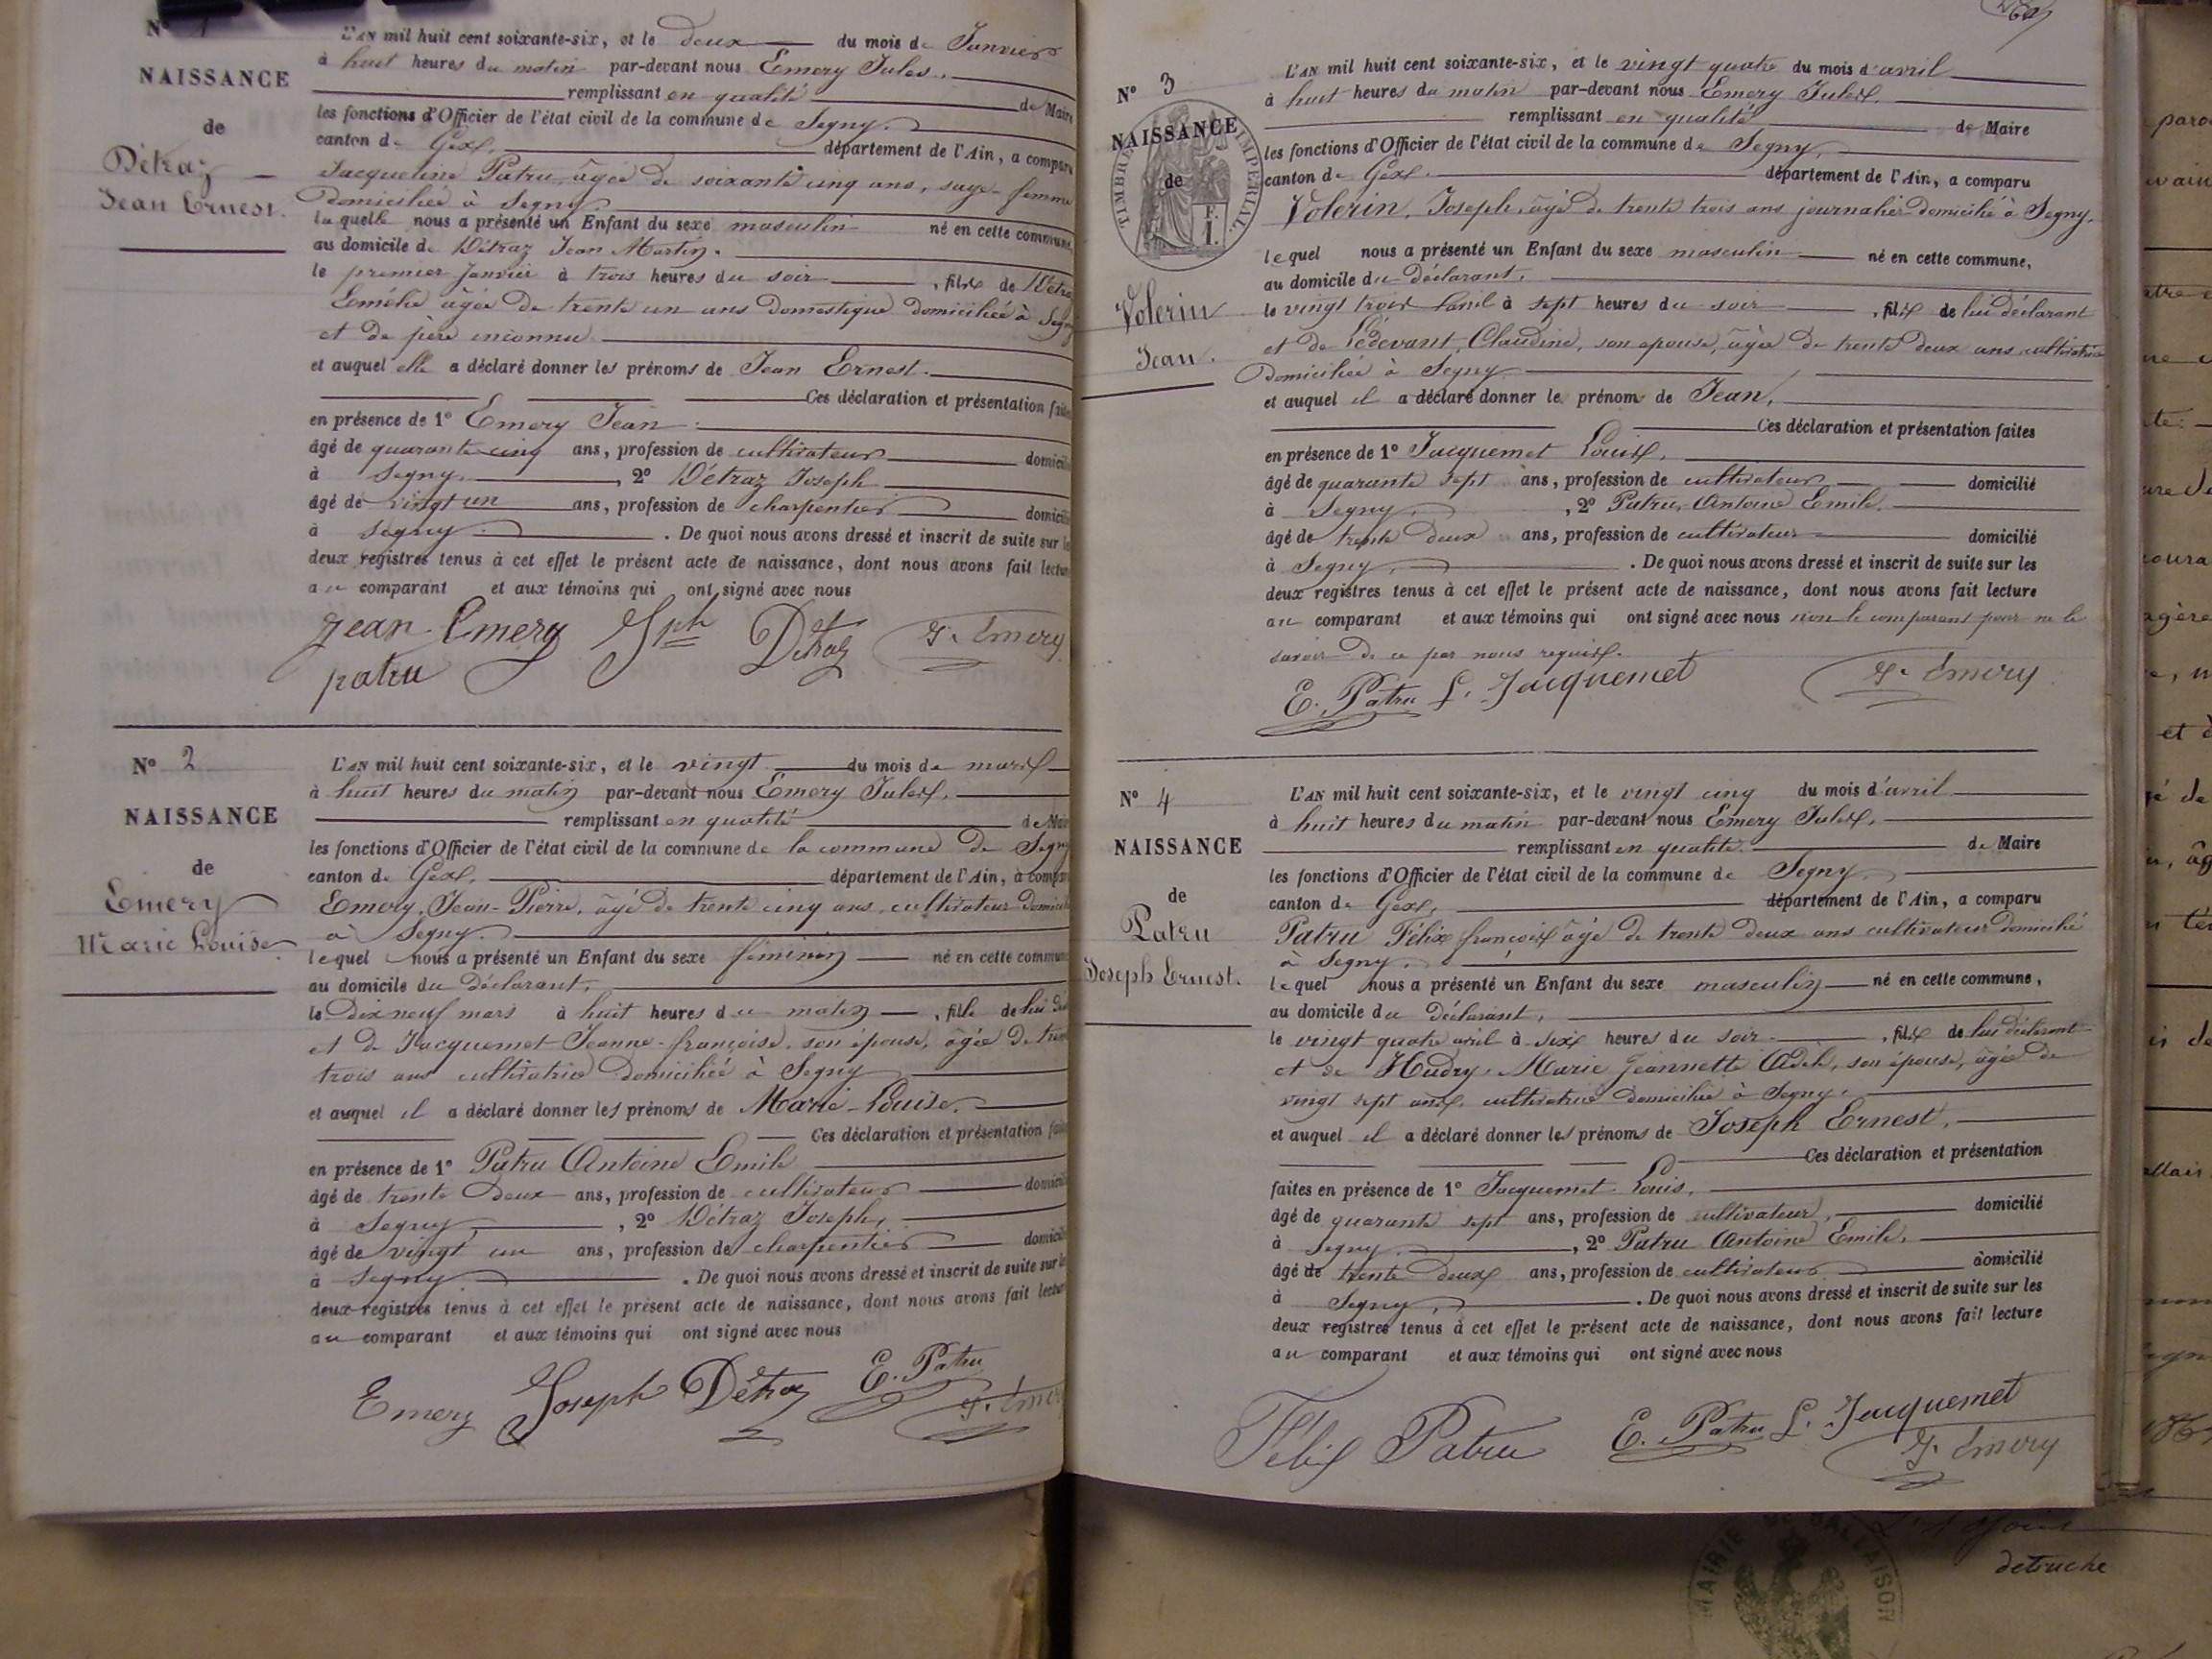 N° 1
NAISSANCE
de
Détraz
Jean Ernest.
L'AN mil huit cent soixante-six, et le deux du mois de Janvier
à huit heures du matin par-devant nous Emery Jules.
remplissant en qualité de Maire
les fonctions d'Officier de l'état civil de la commune de Segny.
canton de Gex. département de l'Ain, a comparu
Jacqueline Patru, âgée de soixante cinq ans, sage-femme
domiciliée à Segny.
laquelle nous a présenté un Enfant du sexe masculin né en cette commune,
au domicile de Détraz Jean Martin.
le premier Janvier à trois heures du soir, fils de Détraz
Emélie âgée de trente un ans domestique domiciliée à Segny
et de père inconnu.
et auquel elle a déclaré donner les prénoms de Jean Ernest.
Ces déclaration et présentation faites
en présence de 1° Emery Jean
âgé de quarante cinq ans, profession de cultivateur domicilié
à Segny, 2° Détraz Joseph
âgé de vingt un ans, profession de charpentier domicilié
à Segny. De quoi nous avons dressé et inscrit de suite sur les
deux registres tenus à cet effet le présent acte de naissance, dont nous avons fait lecture
au comparant et aux témoins qui ont signé avec nous
Jean Emery Jph Détraz J. Emery
patru
N° 2
NAISSANCE
de
Emery
Marie Louise
L'AN mil huit cent soixante-six, et le vingt du mois de mars
à huit heures du matin par-devant nous Emery Jules.
remplissant en qualité de Maire
les fonctions d'Officier de l'état civil de la commune de la commune de Segny
canton de Gex. département de l'Ain, a comparu
Emery, Jean-Pierre, âgé de trente cinq ans, cultivateur domicilié
à Segny.
lequel nous a présenté un Enfant du sexe féminin né en cette commune
au domicile du déclarant,
le dix neuf mars à huit heures du matin, fille de lui
et de Jacquemet Jeanne-françoise, son épouse, âgée de trente
trois ans cultivatrice domiciliée à Segny
et auquel il a déclaré donner les prénoms de Marie-Louise.
Ces déclaration et présentation faites
en présence de 1° Patru Antoine Emile
âgé de trente deux ans, profession de cultivateur domicilié
à Segny, 2° Détraz Joseph,
âgé de vingt un ans, profession de charpentier domicilié
à Segny. De quoi nous avons dressé et inscrit de suite sur les
deux registres tenus à cet effet le présent acte de naissance, dont nous avons fait lecture
au comparant et aux témoins qui ont signé avec nous
Emery Joseph Détraz E. Patru
J. Emery
N° 3
NAISSANCE
de
TIMBRE IMPERIAL
Volerin
Jean.
L'AN mil huit cent soixante-six, et le vingt quatre du mois d'avril
à huit heures du matin par-devant nous Emery Jules.
remplissant en qualité de Maire
les fonctions d'Officier de l'état civil de la commune de Segny,
canton de Gex. département de l'Ain, a comparu
Volerin, Joseph, âgé de trente trois ans journalier domicilié à Segny,
lequel nous a présenté un Enfant du sexe masculin né en cette commune,
au domicile du déclarant,
le vingt trois avril à sept heures du soir, fils de lui déclarant
et de Lédevant, Claudine, son épouse, âgée de trente deux ans cultivatrice
domiciliée à Segny
et auquel il a déclaré donner le prénom de Jean,
Ces déclaration et présentation faites
en présence de 1° Jacquemet Louis,
âgé de quarante sept ans, profession de cultivateur domicilié
à Segny, 2° Patru, Antoine Emile,
âgé de trente deux ans, profession de cultivateur domicilié
à Segny. De quoi nous avons dressé et inscrit de suite sur les
deux registres tenus à cet effet le présent acte de naissance, dont nous avons fait lecture
au comparant et aux témoins qui ont signé avec nous non le comparant pour ne le
savoir de ce par nous requis.
E. Patru L. Jacquemet J. Emery
N° 4
NAISSANCE
de
Patru
Joseph Ernest.
L'AN mil huit cent soixante-six, et le vingt cinq du mois d'avril
à huit heures du matin par-devant nous Emery Jules,
remplissant en qualité de Maire
les fonctions d'Officier de l'état civil de la commune de Segny
canton de Gex, département de l'Ain, a comparu
Patru Félix françois âgé de trente deux ans cultivateur domicilié
à Segny,
lequel nous a présenté un Enfant du sexe masculin né en cette commune,
au domicile du déclarant,
le vingt quatre avril à six heures du soir, fils de lui déclarant
et de Hudry, Marie Jeannette Adèle, son épouse, âgée de
vingt sept ans, cultivatrice domiciliée à Segny,
et auquel il a déclaré donner les prénoms de Joseph Ernest,
Ces déclaration et présentation
faites en présence de 1° Jacquemet Louis,
âgé de quarante sept ans, profession de cultivateur, domicilié
à Segny, 2° Patru Antoine Emile,
âgé de trente deux ans, profession de cultivateur domicilié
à Segny, . De quoi nous avons dressé et inscrit de suite sur les
deux registres tenus à cet effet le présent acte de naissance, dont nous avons fait lecture
au comparant et aux témoins qui ont signé avec nous
Félix Patru E. Patru L. Jacquemet
J. Emery
MAIRIE
detruche